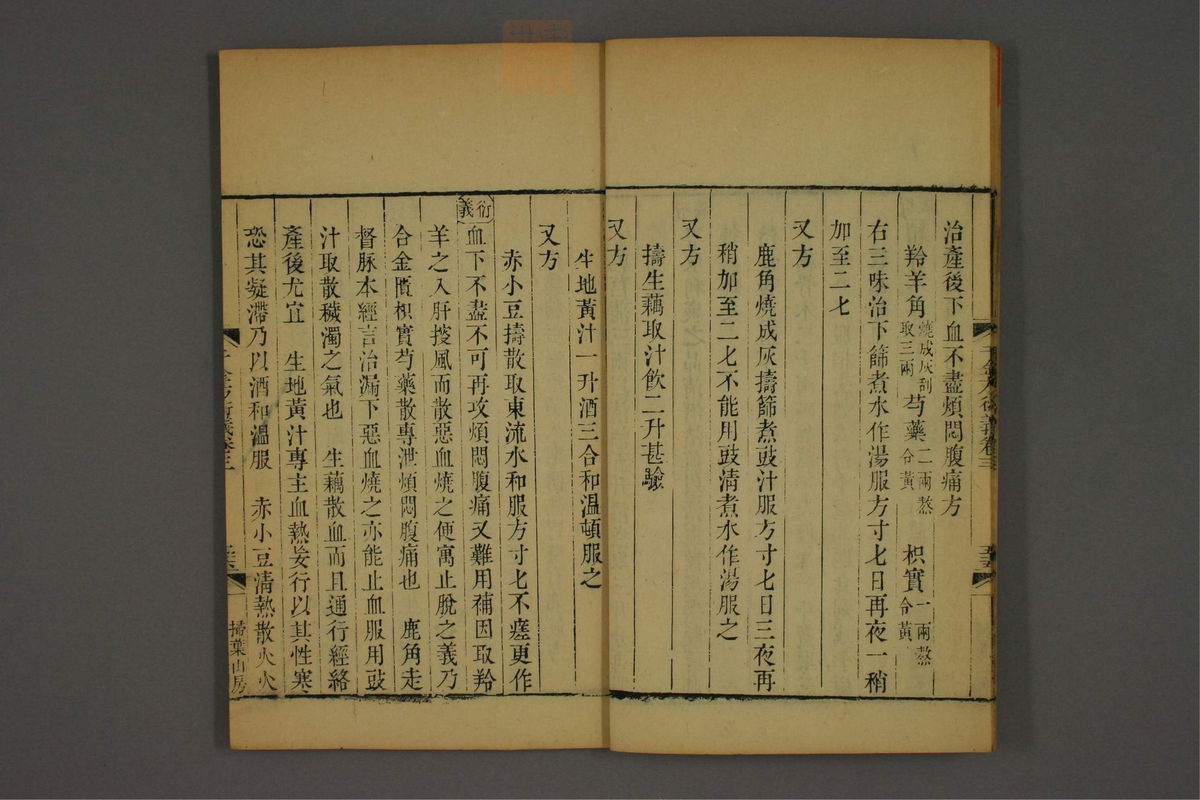 治產後下血不盡煩悶腹痛方
羚羊角燒成灰刮取三兩 芍藥二兩熬令黃 枳實一兩熬令黃
右三味治下篩煮水作湯服方寸匕日再夜一稍
加至二匕
又方
鹿角燒成灰擣篩煮豉汁服方寸匕日三夜再
稍加至二匕不能用豉清煮水作湯服之
又方
擣生藕取汁飲二升甚驗
又方
生地黃汁一升酒三合和溫頓服之
又方
赤小豆擣散取東流水和服方寸匕不瘥更作
衍義 血下不盡不可再攻煩悶腹痛又難用補因取羚
羊之入肝搜風而散惡血燒之便寓止脫之義乃
合金匱枳實芍藥散專泄煩悶腹痛也 鹿角走
督脉本經言治漏下惡血燒之亦能止血服用豉
汁取散穢濁之氣也 生藕散血而且通行經絡
產後尤宜 生地黃汁專主血熱妄行以其性寒
恐其凝滯乃以酒和溫服 赤小豆清熱散火火
千金方衍義卷三
掃葉山房